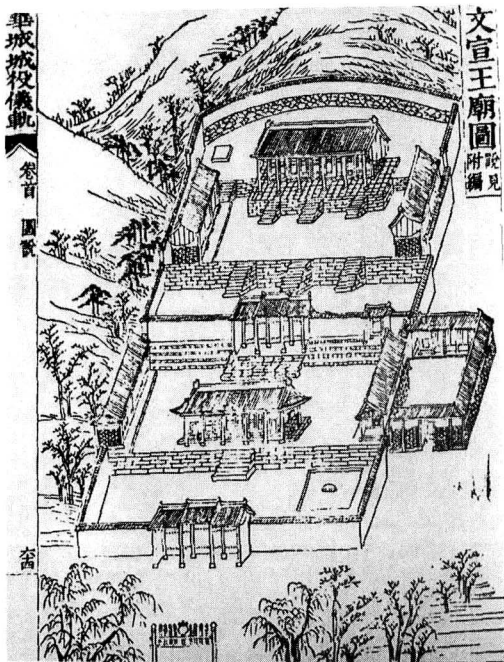 文宣王廟圖
說見
附編
華城城役儀軌
卷首
圖說